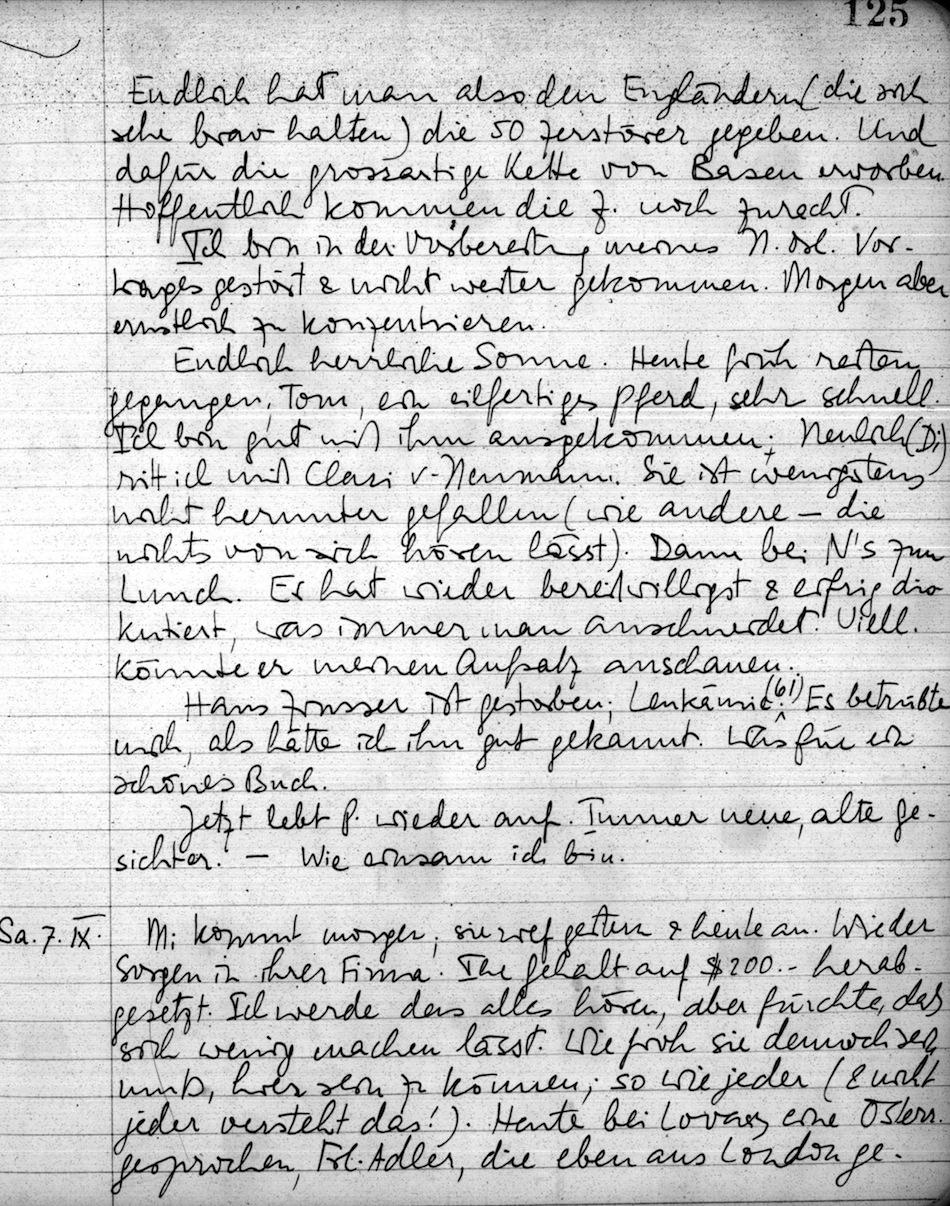 125
Endlich hat man also den Engländern (die sich
sehr brav halten) die 50 Zerstörer gegeben. Und
dafür die grossartige Kette von Basen erworben.
Hoffentlich kommen die Z. noch zurecht.
Ich bin in der Vorbereitung meines N. Vor-
trages gestört & nicht weiter gekommen. Morgen aber
ernstlich zu konzentrieren.
Endlich herrliche Sonne. Heute früh reiten
gegangen, Tom, ein eilfertiges Pferd, sehr schnell.
Ich bin gut mit ihm ausgekommen; Neulich (Di)
ritt ich mit Clari v. Neumann. Sie ist wenigstens
nicht herunter gefallen (wie andere – die
nichts von sich hören lässt). Dann bei N's zum
Lunch. Er hat wieder bereitwilligst & eifrig dis
kutiert, was immer man anschneidet. Viell.
könnte er meinen Aufsatz anschauen.
Hans Zinsser ist gestorben; Leukämie (61). Es betrübte
mich, als hätte ich ihn gut gekannt. Was für ein
schönes Buch.
Jetzt lebt P. wieder auf. Immer neue, alte Ge-
sichter. – Wie einsam ich bin.
Sa. 7. IX. Mi kommt morgen; sie rief gestern & heute an. Wieder
Sorgen in ihrer Firma. Ihr Gehalt auf $200.- herab-
gesetzt. Ich werde das alles hören, aber fürchte, daß
sich wenig machen lässt. Wie froh sie dennoch sein
muß, hier sein zu können; so wie jeder (& nicht
jeder versteht das!). Heute bei eine Österr.
gesprochen, Frl. Adler, die eben aus London ge-